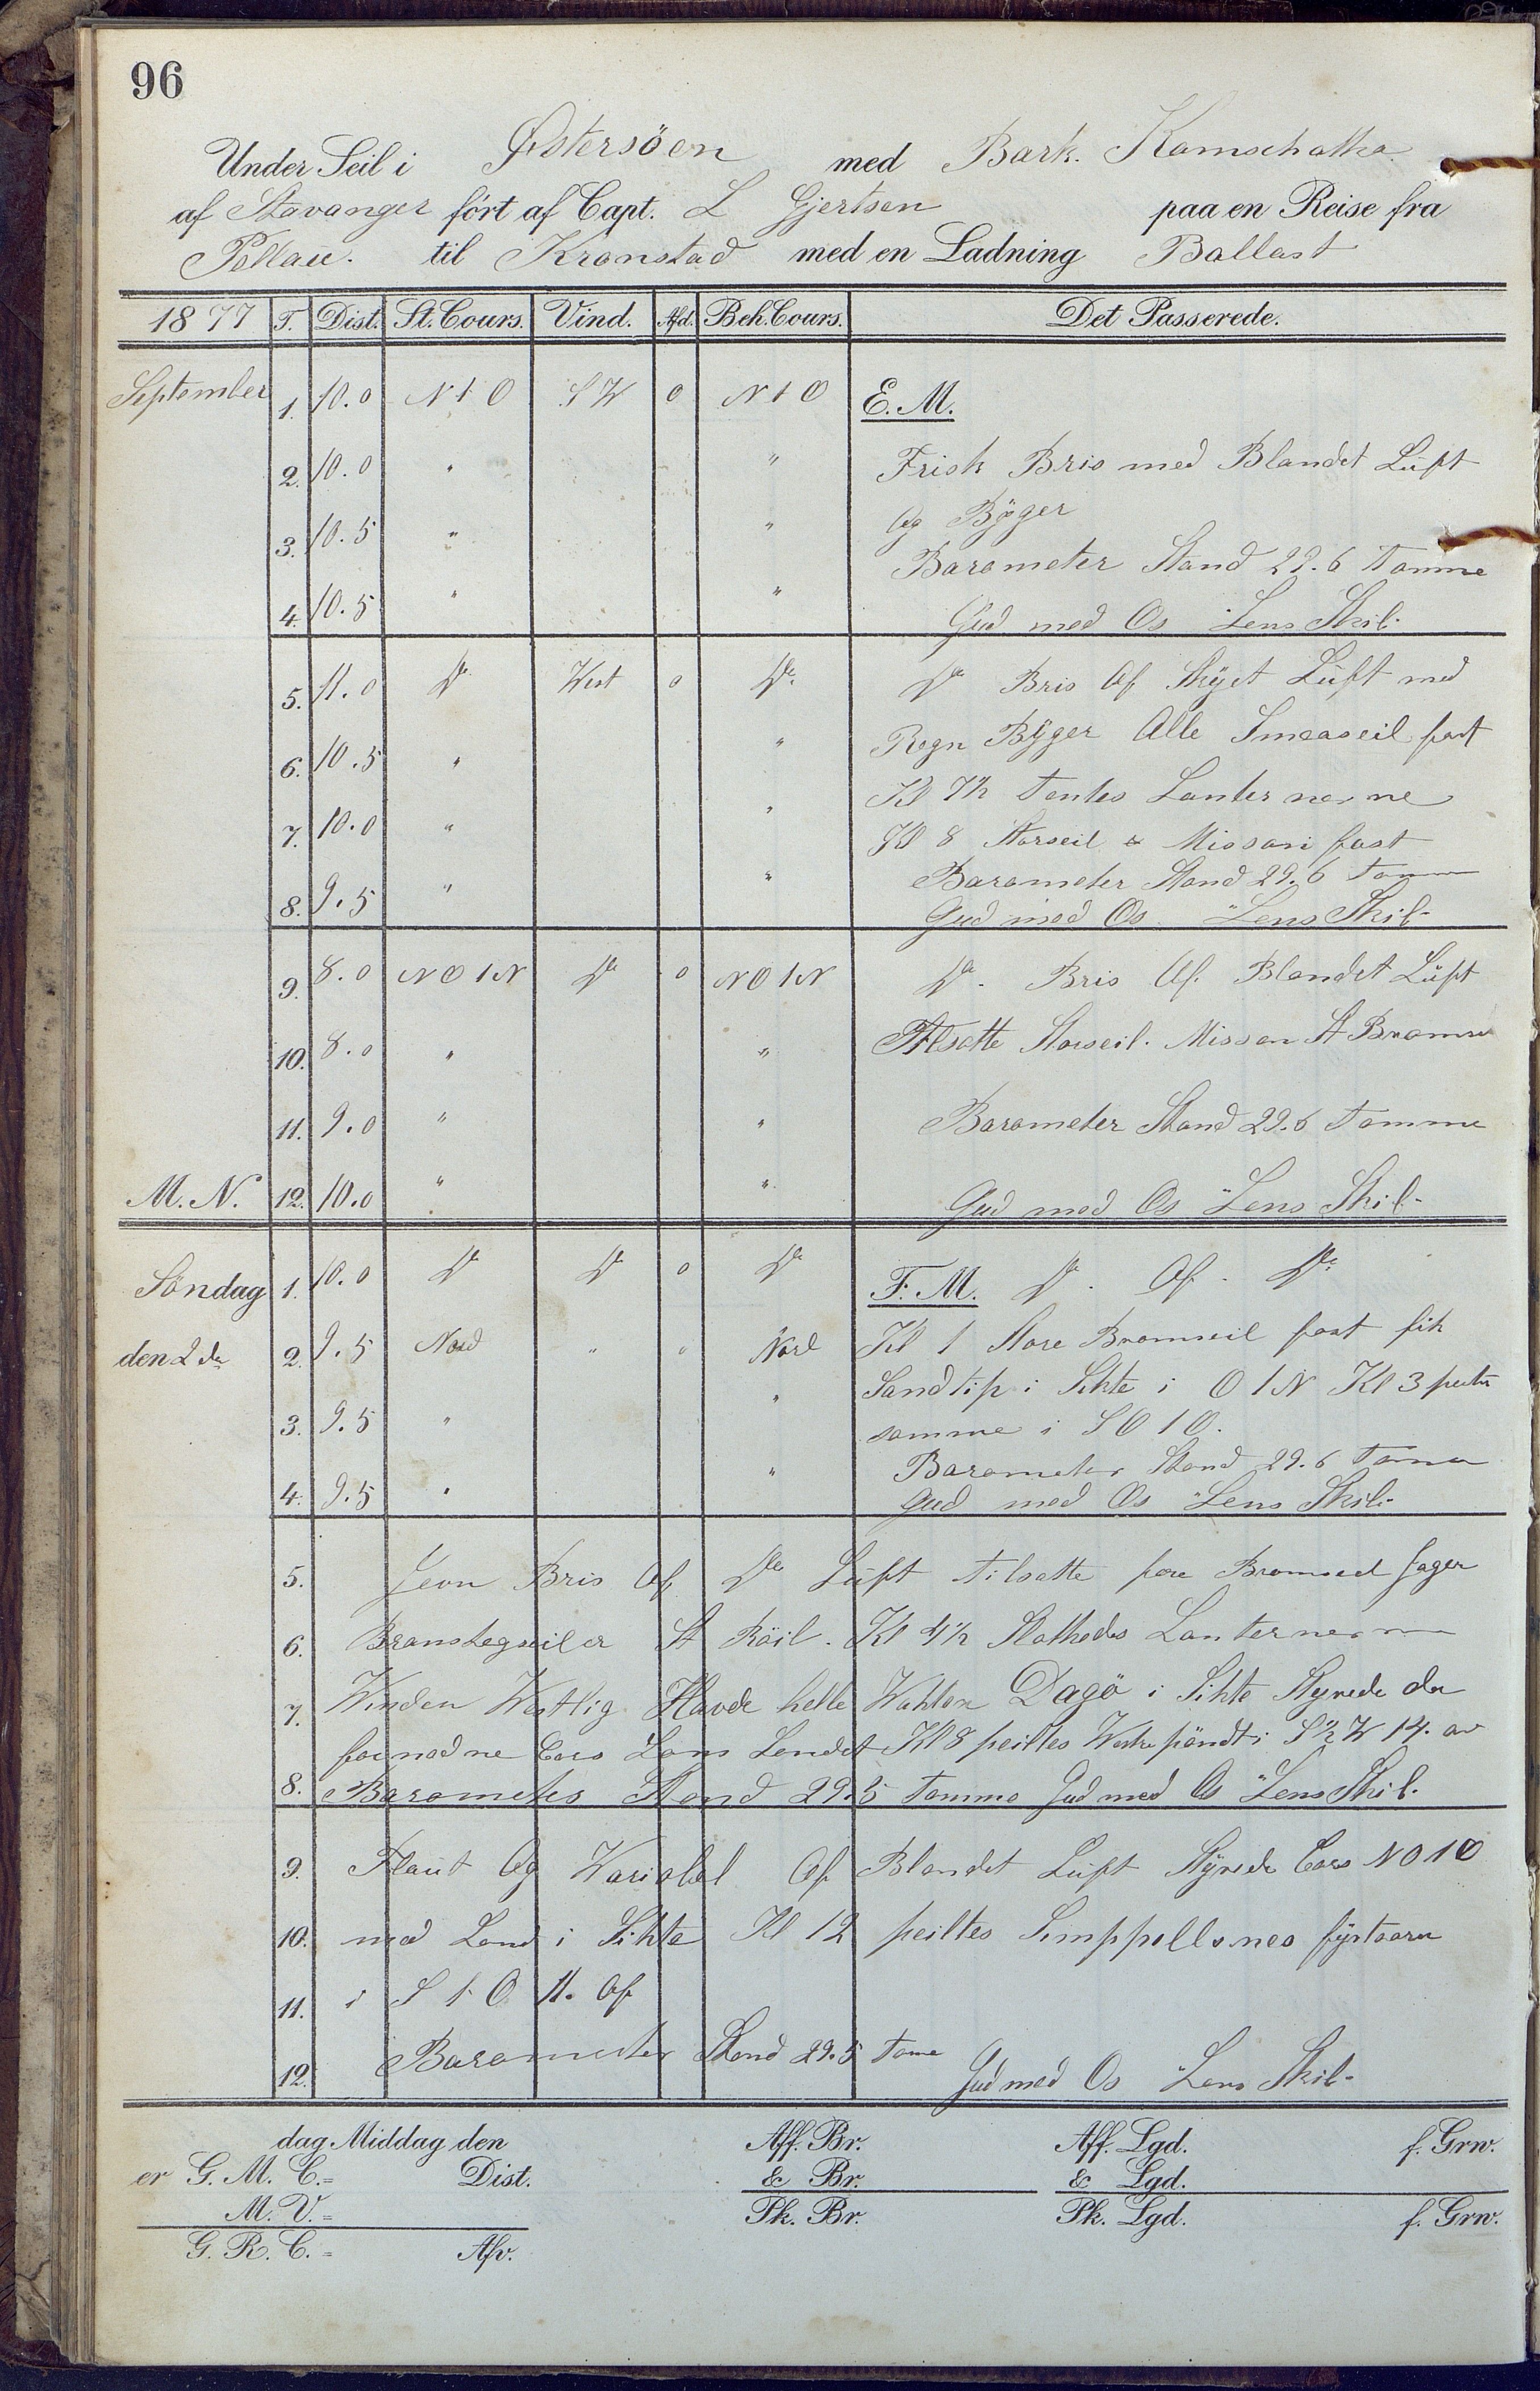 96
Under Seil i Østersöen med Bark. Kamschatka
af Stavanger fört af Capt. L Gjertsen paa en Reise fra
Pellau. til Kronstad med en Ladning Ballast
1877 T. Dist. St. Cours. Vind. Afd. Beh. Cours. Det Passerede.
September 1. 10.0 N t O S W 0 N t O E. M.
2. 10.0 " " Frisk Bris med Blandet Luft
3. 10.5 " " Og Byger
Barometer Stand 29.6 Tomme
4. 10.5 " " Gud med Os Lens Skib.
5. 11.0 Do West 0 Do. Do Bris Af Skyet Luft med
6. 10.5 " " Regn Byger Alle Smaaseil fast
Kl 7½ Tentes Lanternerne
7. 10.0 " " Kl 8 Storseil & Missan fast
Barometer Stand 29.6 Tomme
8. 9.5 " " Gud med Os Lens Skib
9. 8.0 N O t N Do 0 N O t N Do. Bris Af. Blandet Luft
10. 8.0 " " Tilsatte Storseil. Missan St Bramse
11. 9.0 " " Barometer Stand 29.6 Tomme
M. N. 12. 10.0 " " Gud med Os Lens Skib
Söndag 1. 10.0 Do Do 0 Do F. M. Do. Af. Do.
den 2 de 2. 9.5 Nord " " Nord Kl 1 Store Bramseil fast fik
Sandtip i Sikte i O t N Kl 3
3. 9.5 " " samme i S O t O.
Barometer Stand 29.6 Tomme
4. 9.5 " " Gud med Os Lens Skib
5. Jevn Bris Af Do Luft Tilsatte fore Bramseil Jager
6. Bramstegseiler St Röil. Kl 4½ Slokkedes Lanternerne
7. Vinden Westlig Havde helle Wakten Dagö i Sikte Styrede de
fornødne Cors Lans Landet Kl 8 peiltes S ½ W 14. av
8. Barometer Stand 29.5 Tomme Gud med Os Lens Skib.
9. Flaut Og Variabel Af Blandet Luft Styrede Cors N O t O
10. med Land i Sikte Kl 12 peiltes fyrtaarn
11. i S t O 11. Af
12. Barometer Stand 29.5 Tome Gud med Os Lens Skib
dag Middag den Aff. Br. Aff. Lgd. f. Grw.
er G. M. C.= Dist. & Br. & Lgd.
M. V.= Pk. Br. Pk. Lgd. f. Grw.
G. R. C.= Afv.